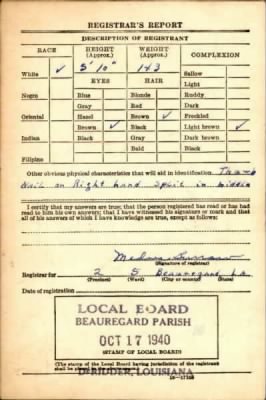 REGISTRAR'S REPORT
DESCRIPTION OF REGISTRANT
RACE HEIGHT (Approx.) WEIGHT (Approx.) COMPLEXION
White ✓ 5' 10" 143 Sallow
EYES HAIR Light
Negro Blue Blonde Ruddy
Gray Red Dark
Oriental Hazel Brown ✓ Freckled
Brown ✓ Black Light brown ✓
Indian Black Gray Dark brown
Bald Black
Filipino
Other obvious physical characteristics that will aid in identification Thumb
Nail on Right hand split in middle
I certify that my answers are true; that the person registered has read or has had
read to him his own answers; that I have witnessed his signature or mark and that
all of his answers of which I have knowledge are true, except as follows:
(Signature of registrar)
Registrar for 2 5 Beauregard La.
(Precinct) (Ward) (City or county) (State)
Date of registration
LOCAL BOARD
BEAUREGARD PARISH
OCT 17 1940
(STAMP OF LOCAL BOARD)
(The stamp of the Local Board having jurisdiction of the registrant
shall be placed in the above space.)
DERIDDER, LOUISIANA